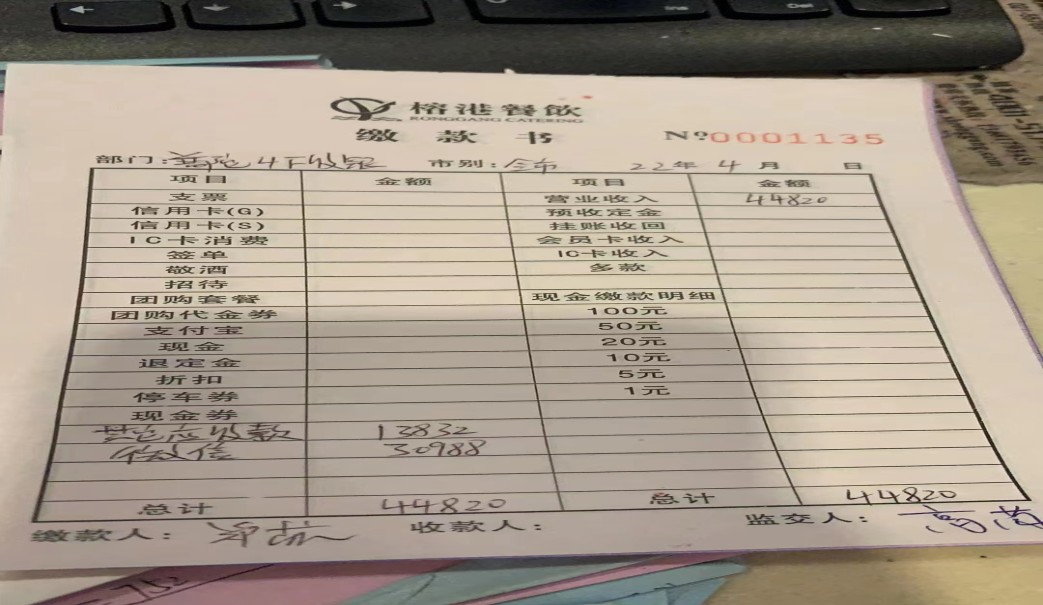 Del
榕港餐飲
RONGGANG CATERING
缴款书
Nº0001135
部门: 市别: 全市 22年 4月 日
项目 金额 项目 金额
支票 营业收入 44820
信用卡(G) 预收定金
信用卡(S) 挂账收回
IC卡消费 会员卡收入
签单 IC卡收入
敬酒 多款
招待
团购套餐 现金缴款明细
团购代金券 100元
支付宝 50元
现金 20元
退定金 10元
折扣 5元
停车券 1元
现金券
其它应收款 13832
微信 30988
总计 44820 总计 44820
缴款人: 收款人: 监交人:
752